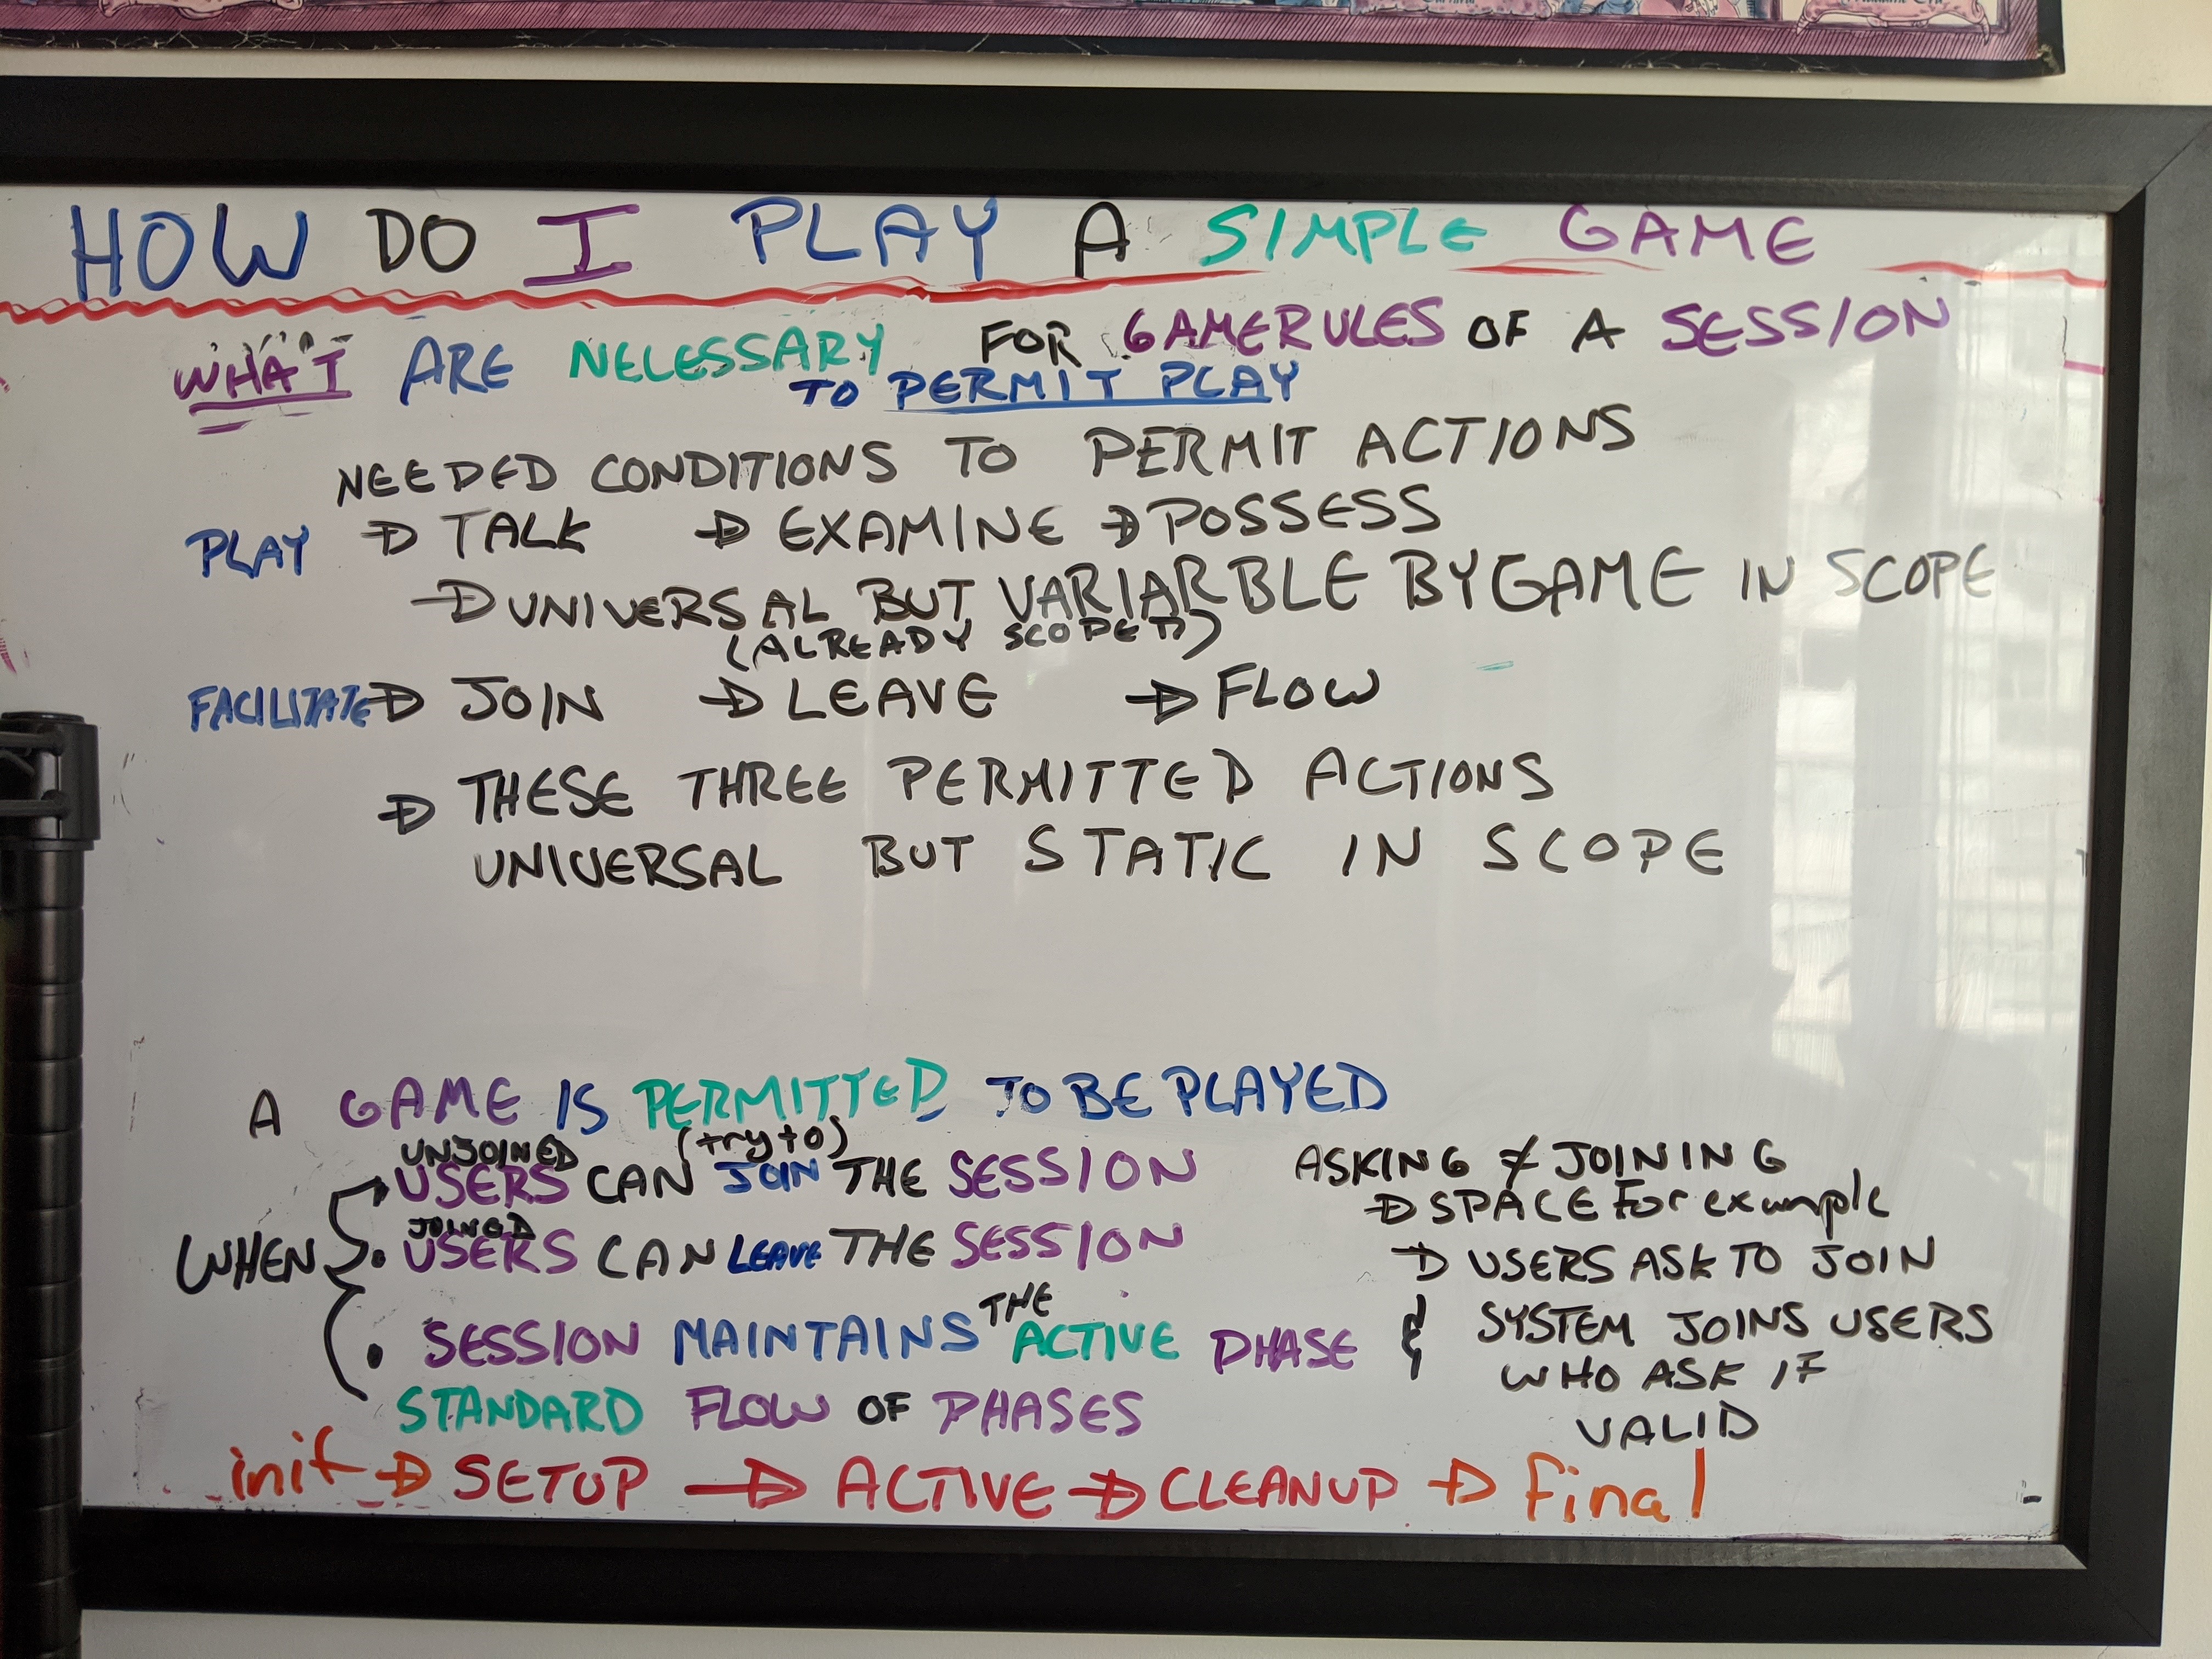 HOW DO I PLAY A SIMPLE GAME
WHAT ARE NECESSARY FOR GAMERULES OF A SESSION
TO PERMIT PLAY
NEEDED CONDITIONS TO PERMIT ACTIONS
PLAY → TALK → EXAMINE → POSSESS
→ UNIVERSAL BUT VARIABLE BY GAME IN SCOPE
(ALREADY SCOPED)
FACILITATE → JOIN → LEAVE → FLOW
→ THESE THREE PERMITTED ACTIONS
UNIVERSAL BUT STATIC IN SCOPE
A GAME IS PERMITTED TO BE PLAYED
WHEN
UNJOINED (try to)
USERS CAN JOIN THE SESSION
JOINED
• USERS CAN LEAVE THE SESSION
THE
• SESSION MAINTAINS ACTIVE PHASE
STANDARD FLOW OF PHASES
ASKING ≠ JOINING
→ SPACE For example
→ USERS ASK TO JOIN
& SYSTEM JOINS USERS
WHO ASK IF
VALID
init → SETUP → ACTIVE → CLEANUP → Final